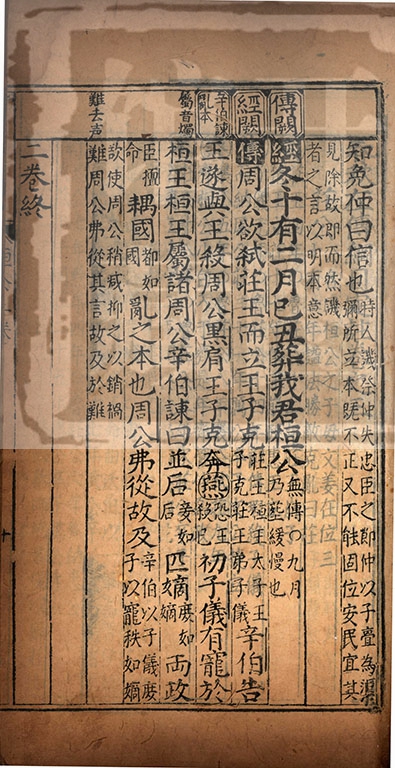 傳闕
經闕
辛伯諫
亂本
屬音燭
難去声
知免仲曰信也時人譏祭仲失忠臣之節仲以子亹為渠
彌所立本既不正又不能固位安民宜其
見除故即而然譏
者之言以明本意
經冬十有二月己丑葬我君桓公無傳〇九月
乃葬緩慢也
傳周公欲弒莊王而立王子克莊王桓王太子王
子克莊王弟子儀辛伯告
王遂與王殺周公黑肩王子克奔燕恐王
殺己初子儀有寵於
桓王桓王屬諸周公辛伯諫曰並后妾如
后匹嫡庶如
嫡兩政
臣擅
命耦國都如
國亂之本也周公弗從故及辛伯以子儀庶
子以寵秩如嫡
欲使周公稍疏抑之以銷禍
難周公弗從其言故及於難
二卷終